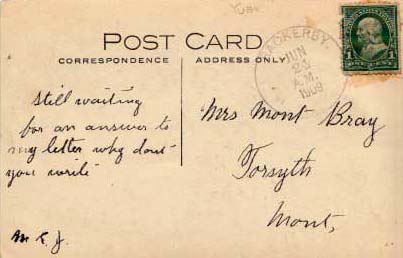 POST CARD
CORRESPONDENCE
ADDRESS ONLY
HACKERBY.
JUN
24
A.M.
1909
1
ONE CENT
Still waiting
for an answer to
my letter why dont
you write
M E J.
Mrs Mont Bray
Forsyth
Mont,